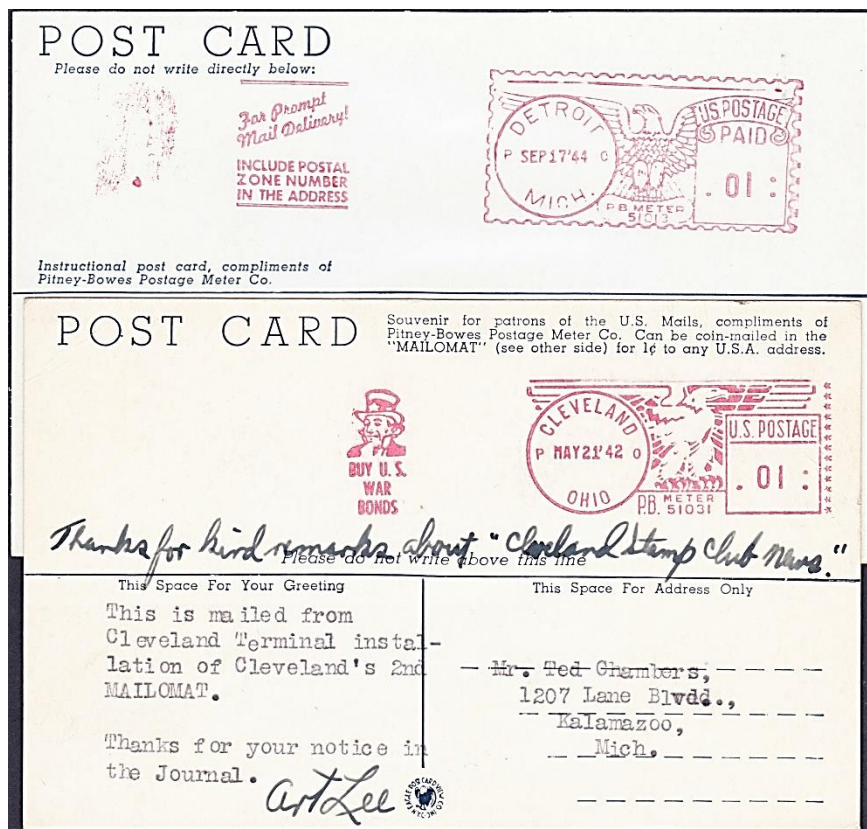 POST CARD
Please do not write directly below:
For Prompt
Mail Delivery!
INCLUDE POSTAL
ZONE NUMBER
IN THE ADDRESS
DETROIT
P SEP 17 '44 O
MICH.
P.B. METER
51013
U.S. POSTAGE
PAID
. 01 :
Instructional post card, compliments of
Pitney-Bowes Postage Meter Co.
POST CARD
Souvenir for patrons of the U.S. Mails, compliments of
Pitney-Bowes Postage Meter Co. Can be coin-mailed in the
"MAILOMAT" (see other side) for 1¢ to any U.S.A. address.
BUY U.S.
WAR
BONDS
CLEVELAND
P MAY 21 '42 O
OHIO
P.B. METER
51031
U.S. POSTAGE
. 01 :
Thanks for kind remarks about "Cleveland Stamp Club News."
Please do not write above this line
This Space For Your Greeting
This is mailed from
Cleveland Terminal instal-
lation of Cleveland's 2nd
MAILOMAT.
Thanks for your notice in
the Journal.
Art Lee
This Space For Address Only
Mr. Ted Chambers,
1207 Lane Blvdd.,
Kalamazoo,
Mich.